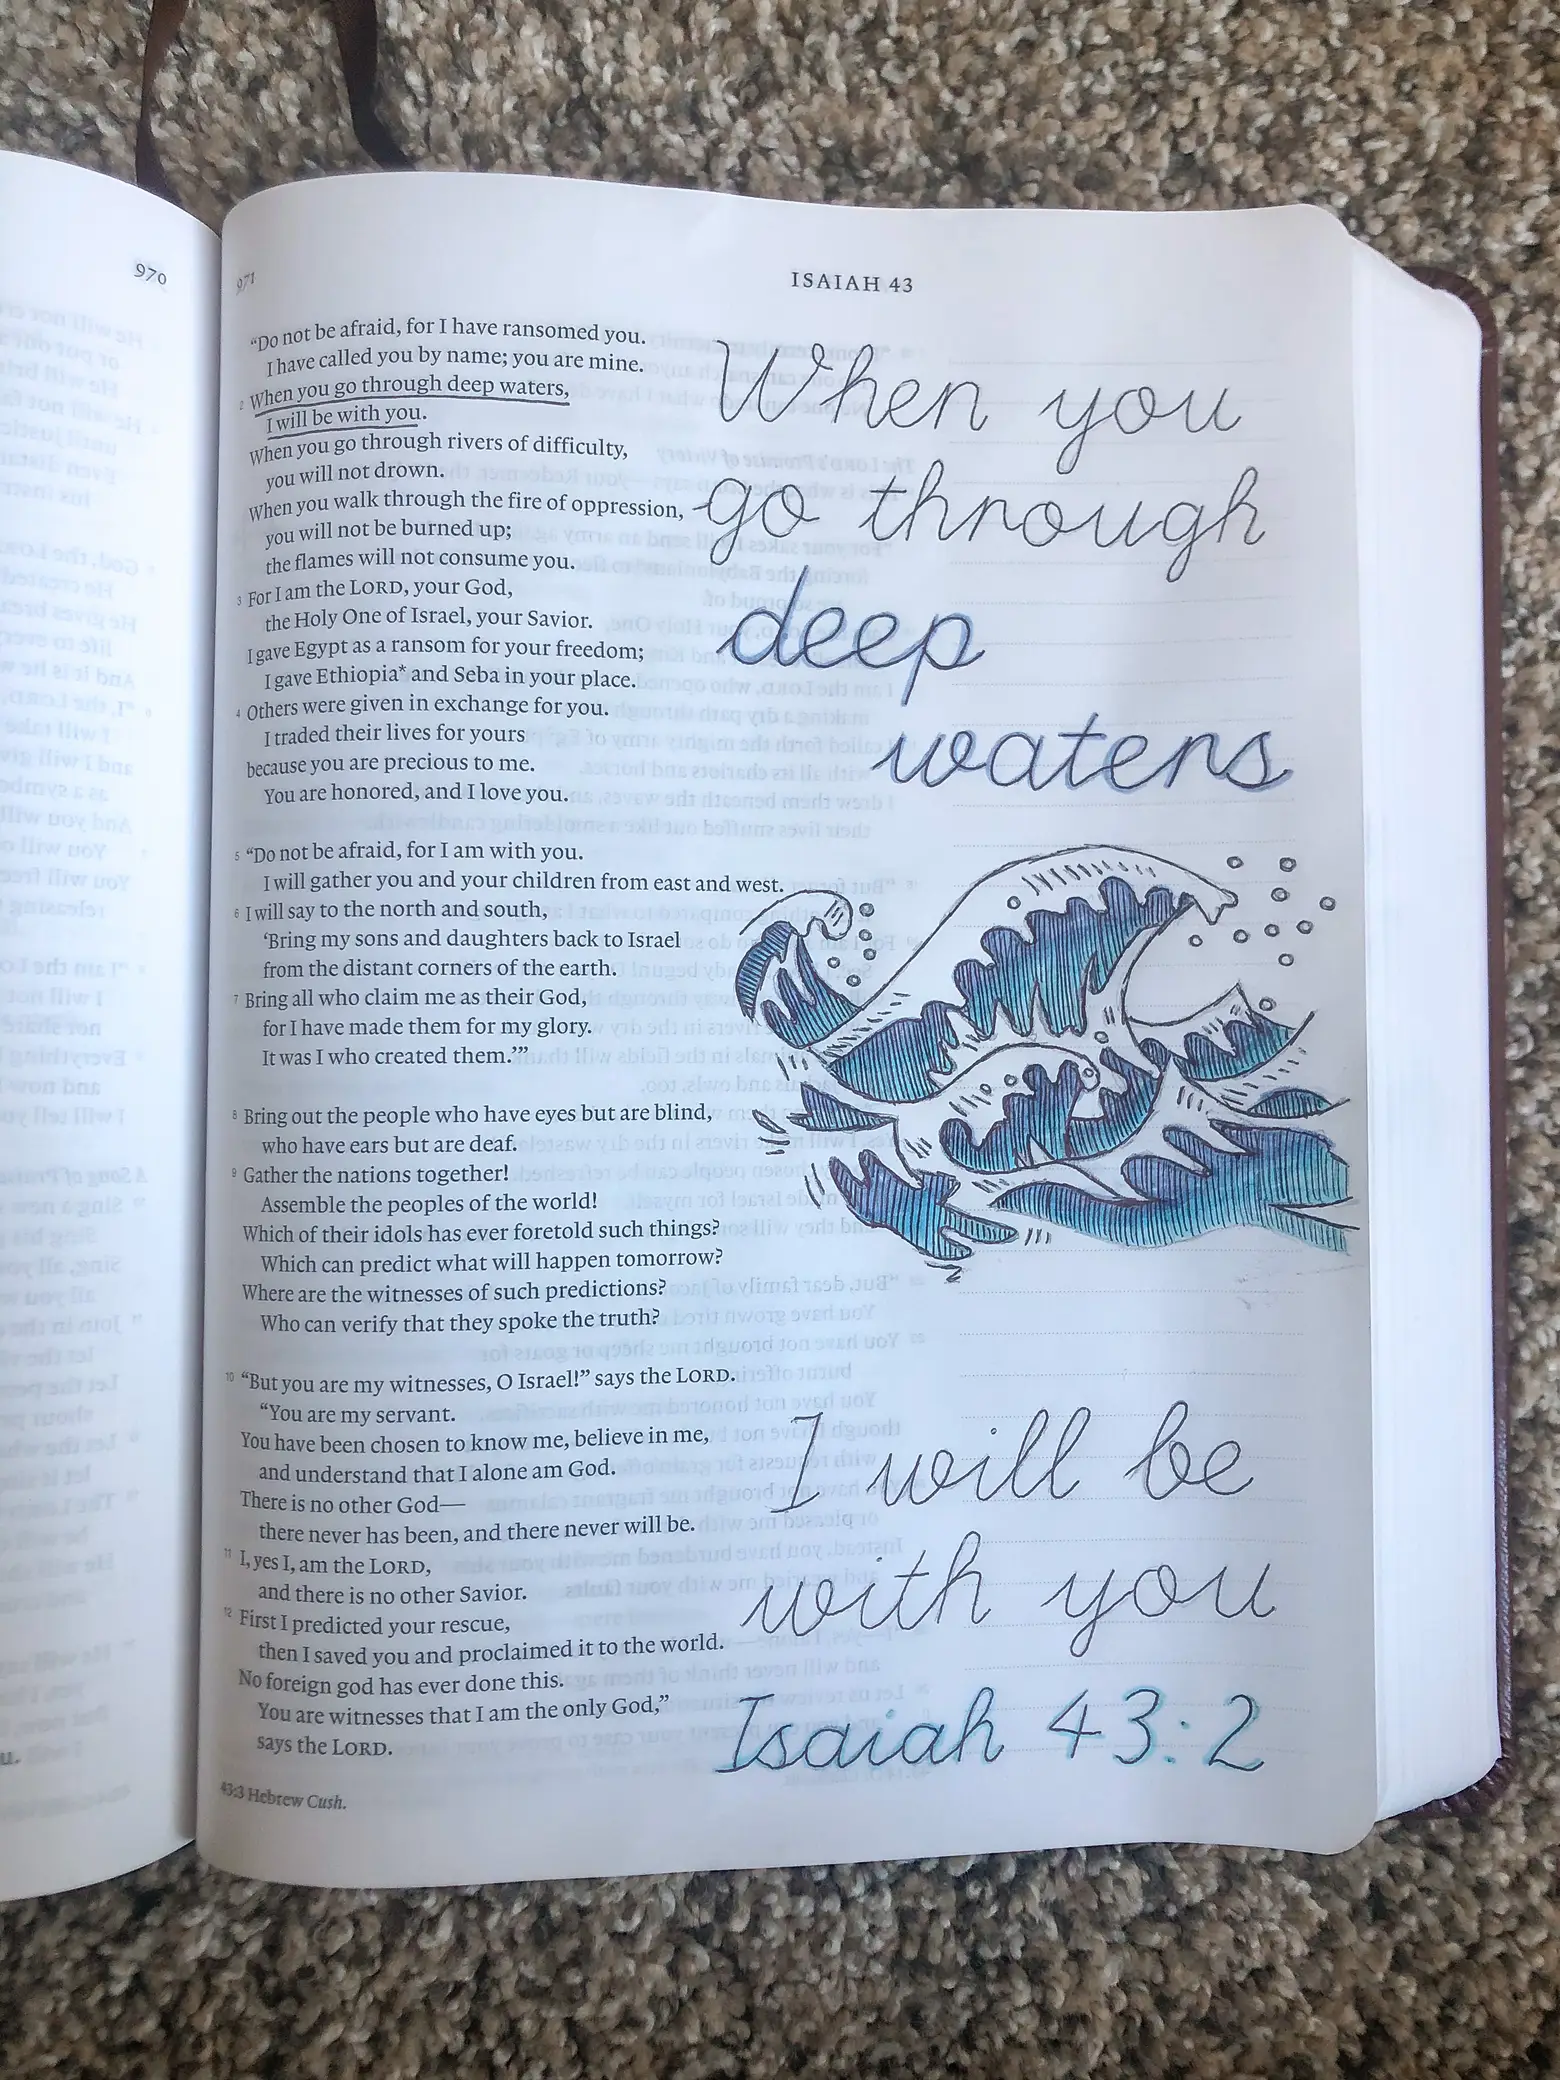 970
971
ISAIAH 43
“Do not be afraid, for I have ransomed you.
I have called you by name; you are mine.
2 When you go through deep waters,
I will be with you.
When you go through rivers of difficulty,
you will not drown.
When you walk through the fire of oppression,
you will not be burned up;
the flames will not consume you.
3 For I am the LORD, your God,
the Holy One of Israel, your Savior.
I gave Egypt as a ransom for your freedom;
I gave Ethiopia* and Seba in your place.
4 Others were given in exchange for you.
I traded their lives for yours
because you are precious to me.
You are honored, and I love you.
5 “Do not be afraid, for I am with you.
I will gather you and your children from east and west.
6 I will say to the north and south,
‘Bring my sons and daughters back to Israel
from the distant corners of the earth.
7 Bring all who claim me as their God,
for I have made them for my glory.
It was I who created them.’”
8 Bring out the people who have eyes but are blind,
who have ears but are deaf.
9 Gather the nations together!
Assemble the peoples of the world!
Which of their idols has ever foretold such things?
Which can predict what will happen tomorrow?
Where are the witnesses of such predictions?
Who can verify that they spoke the truth?
10 “But you are my witnesses, O Israel!” says the LORD.
“You are my servant.
You have been chosen to know me, believe in me,
and understand that I alone am God.
There is no other God—
there never has been, and there never will be.
11 I, yes I, am the LORD,
and there is no other Savior.
12 First I predicted your rescue,
then I saved you and proclaimed it to the world.
No foreign god has ever done this.
You are witnesses that I am the only God,”
says the LORD.
43:3 Hebrew Cush.
When you
go through
deep
waters
I will be
with you
Isaiah 43:2